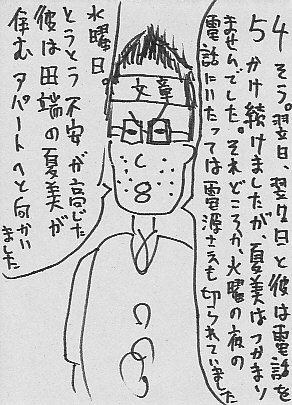 54
そう。翌日、翌々日と彼は電話を
かけ続けましたが、夏美はつかまり
ませんでした。それどころか、水曜の夜の
電話にいたっては電源さえも切られていました
文章
水曜日。
とうとう不安が高じた
彼は田端の夏美が
住むアパートへと向かい
ました